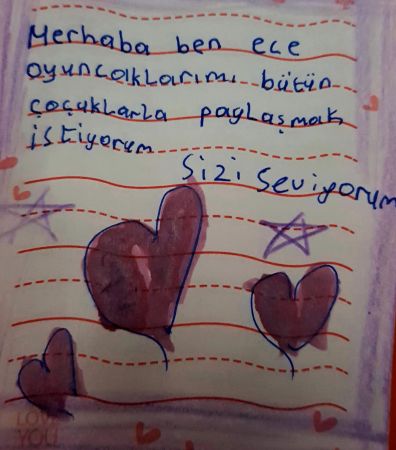 Merhaba ben ece
oyuncaklarımı bütün
çoçuklarla paylaşmak
istiyorum
Sizi Seviyorum
LOVE
YOU